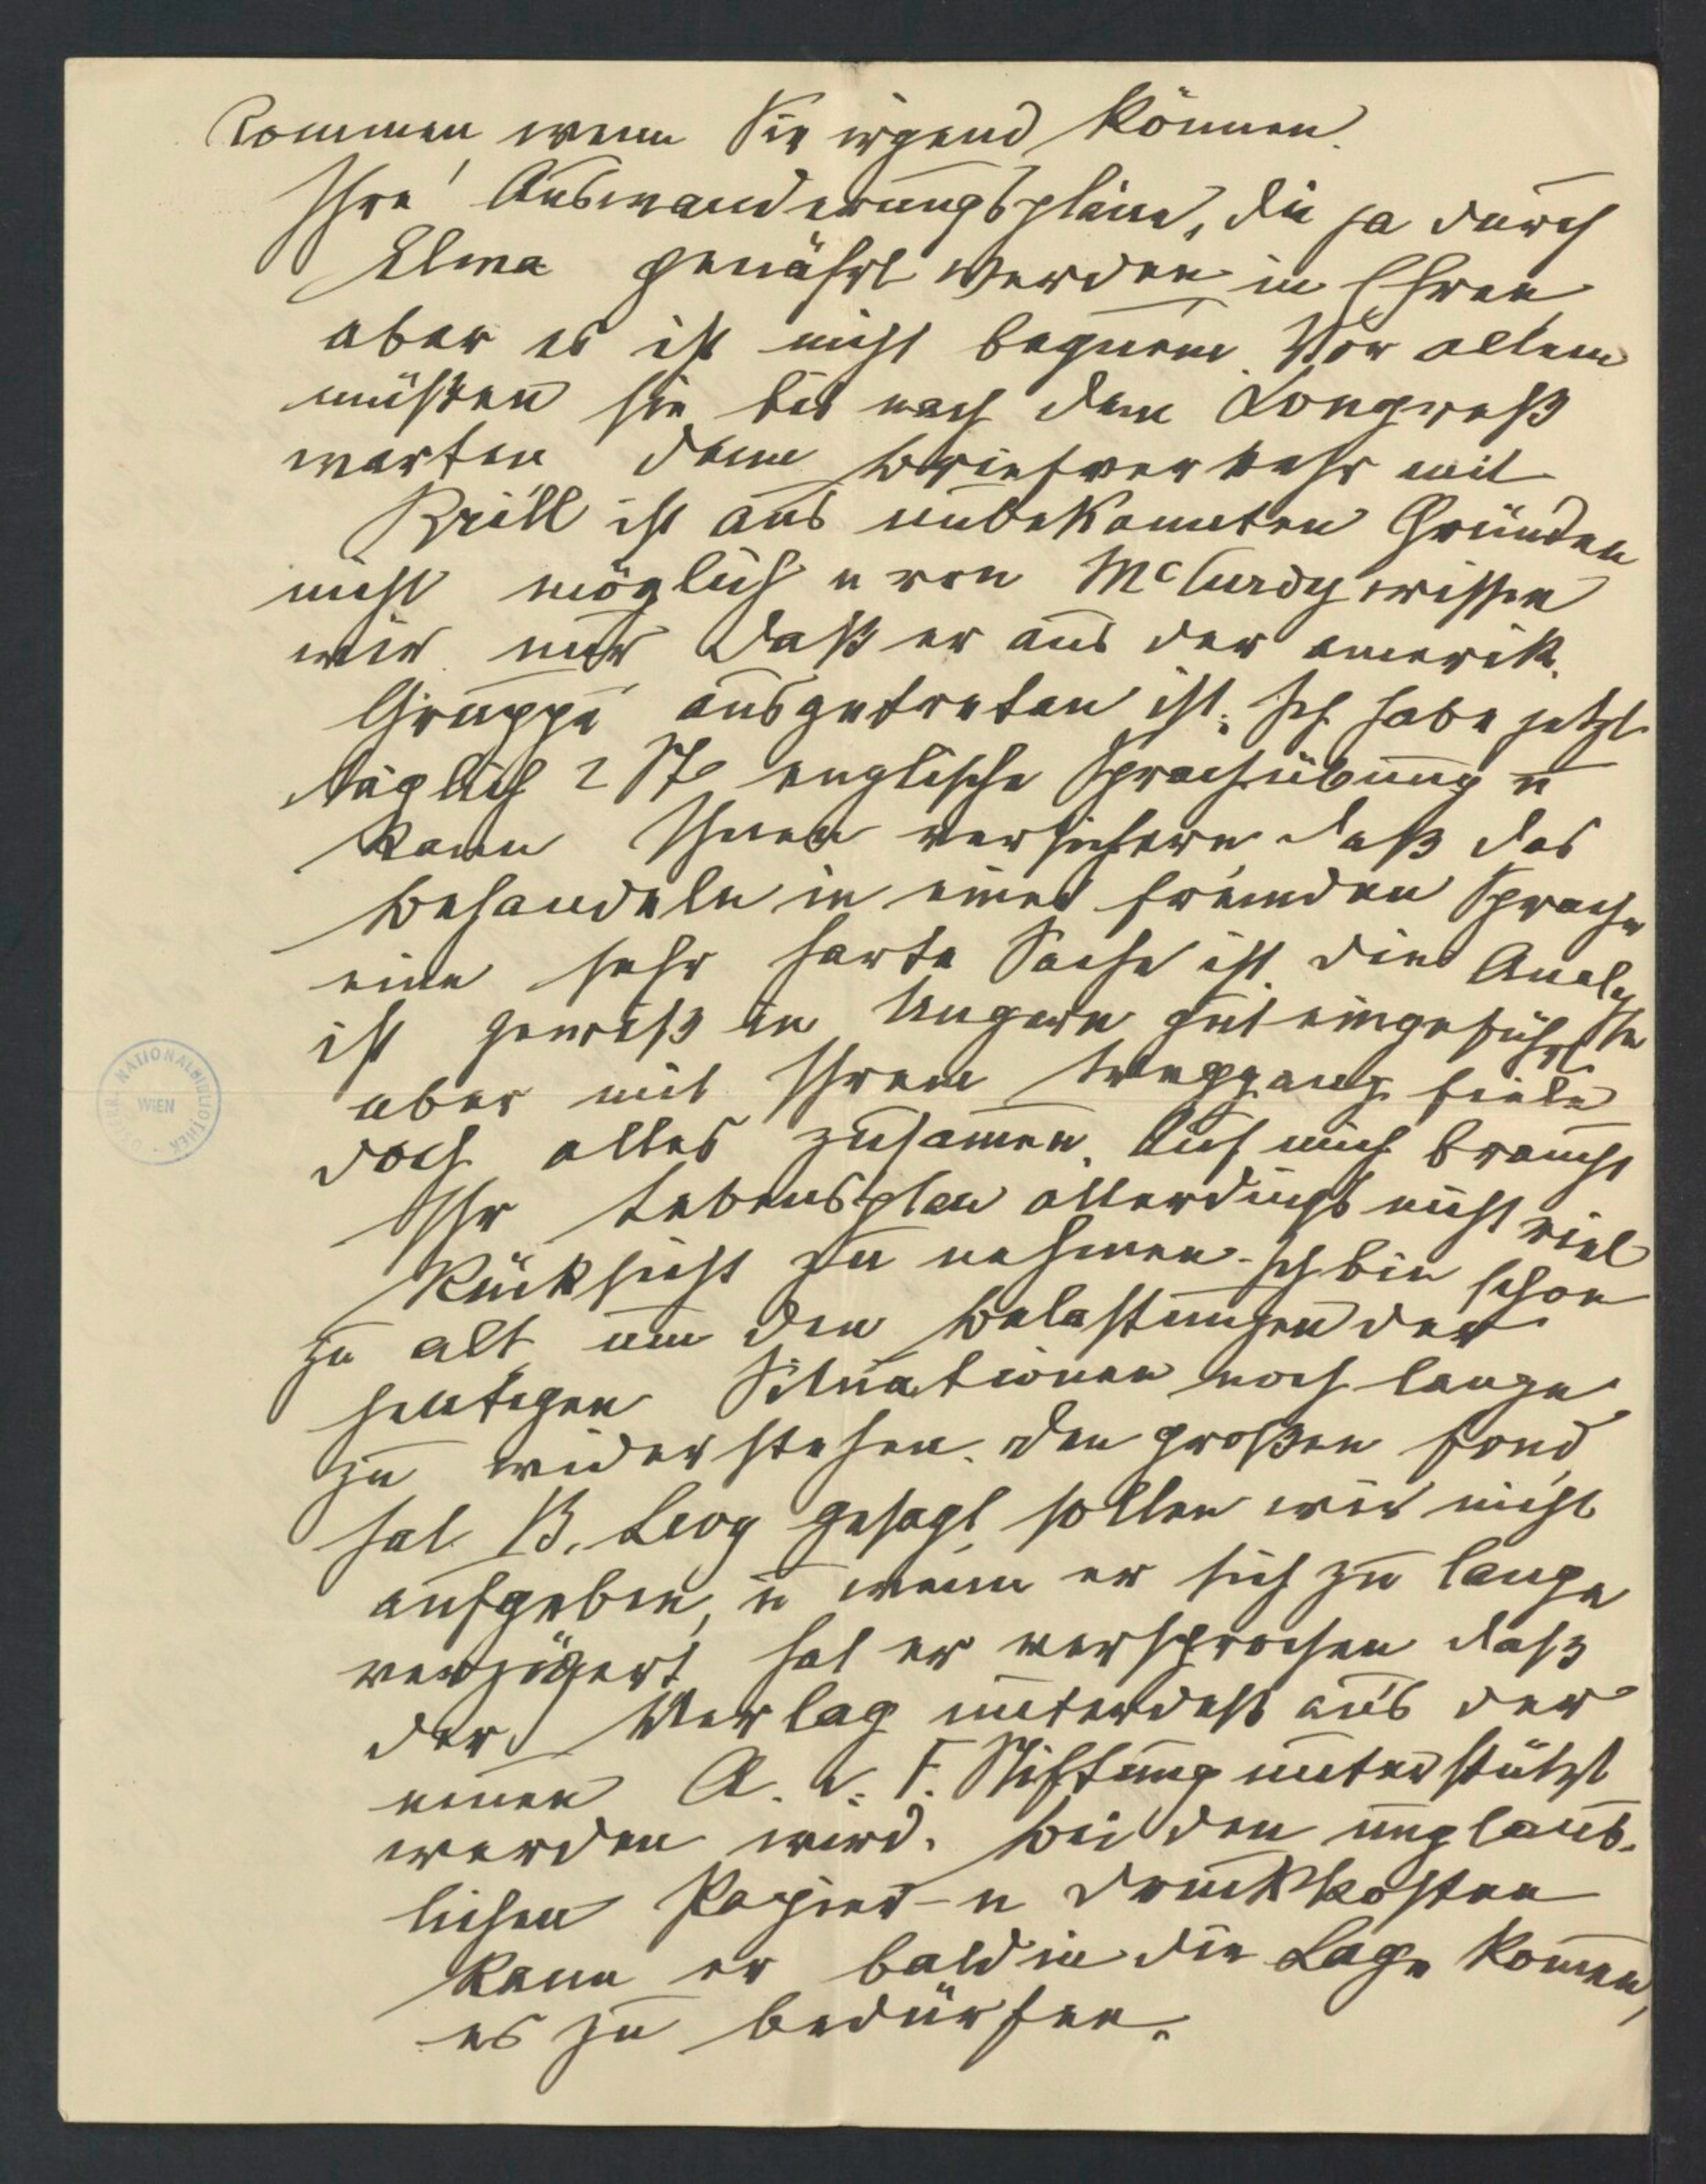 kommen wenn Sie irgend können.
Ihre Auswanderungspläne, die ja durch
Elma genährt werden in Ehren,
aber es ist nicht bequem. Vor allem
müßten sie bis nach dem Congreß
warten denn Briefverkehr mit
Brill ist aus unbekannten Gründen
nicht möglich u von McCurdy wissen
wir nur daß er aus der amerik.
Gruppe ausgetreten ist. Ich habe jetzt
täglich 2 St englische Sprachübung u
kann Ihnen versichern daß das
Behandeln in einer fremden Sprache
eine sehr harte Sache ist. Die Analyse
ist gewiß in Ungarn gut eingeführt.
aber mit Ihrem Weggang fiele
doch alles zusammen. Auf mich braucht
Ihr Lebensplan allerdings nicht viel
Rücksicht zu nehmen. Ich bin schon
zu alt um den Belastungen der
heutigen Situationen noch lange
zu widerstehen. Den großen Fond
hat B. Levy gesagt sollen wir nicht
aufgeben, u wenn er sich zu lange
verzögert hat er versprochen daß
der Verlag unterdeß aus der
neuen A. v. F. Stiftung unterstützt
werden wird. Bei den unglaub-
lichen Papier- u Druckkosten
kann er bald in die Lage kommen,
es zu bedürfen.
ÖSTERR. NATIONALBIBLIOTHEK
WIEN